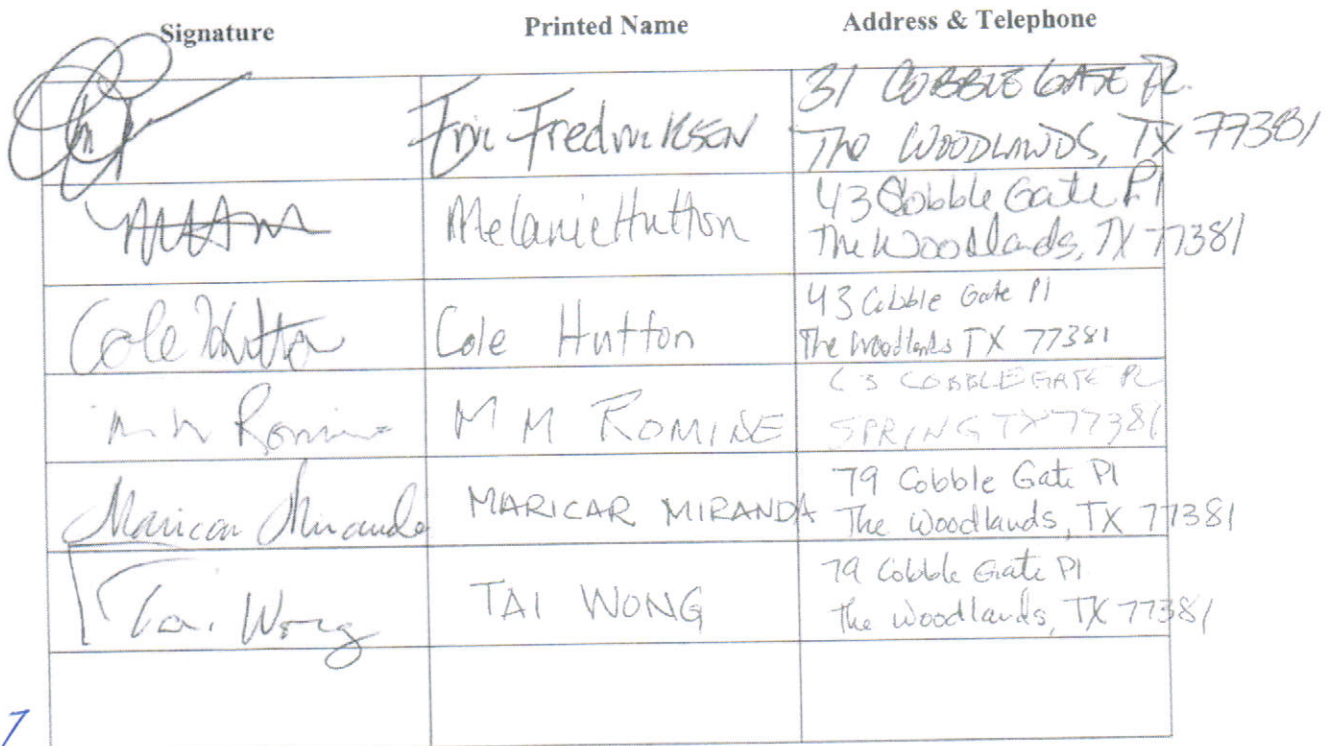 Signature Printed Name Address & Telephone
Eric Fredricksen 31 COBBLE GATE PL.
The WOODLANDS, TX 77381
Melanie Hutton 43 Cobble Gate Pl
The Woodlands, TX 77381
Cole Hutton Cole Hutton 43 Cobble Gate Pl
The Woodlands TX 77381
M M Romine M M ROMINE 63 COBBLEGATE PL
SPRING TX 77381
Maricar Miranda MARICAR MIRANDA 79 Cobble Gate Pl
The Woodlands, TX 77381
Tai Wong TAI WONG 79 Cobble Gate Pl
The Woodlands, TX 77381